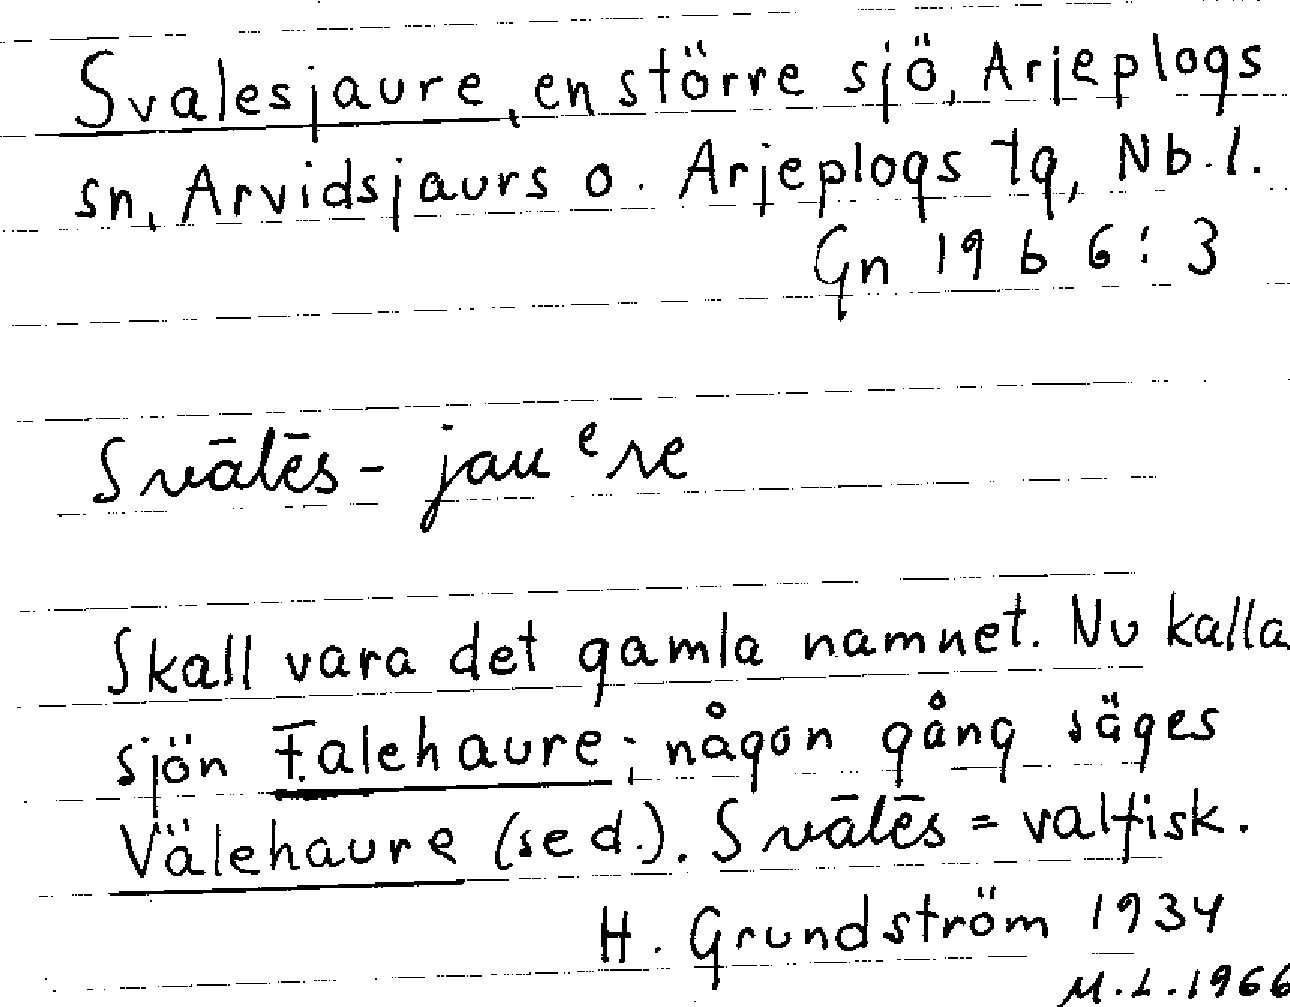 Svalesjaure, en större sjö, Arjeplogs
sn, Arvidsjaurs o. Arjeplogs tg, Nb.l.
Gn 19 b 6:3
Svālēs-jauᵉre
Skall vara det gamla namnet. Nu kalla
sjön Falehaure; någon gång säges
Välehaure (se d.). Svālēs = valfisk.
H. Grundström 1934
M.L.1966